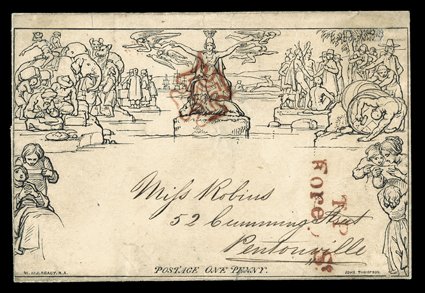 Miss Robins
52 Cumming Street
Pentonville
T.P
Fore St
POSTAGE ONE PENNY.
W. MULREADY, R.A.
JOHN THOMPSON